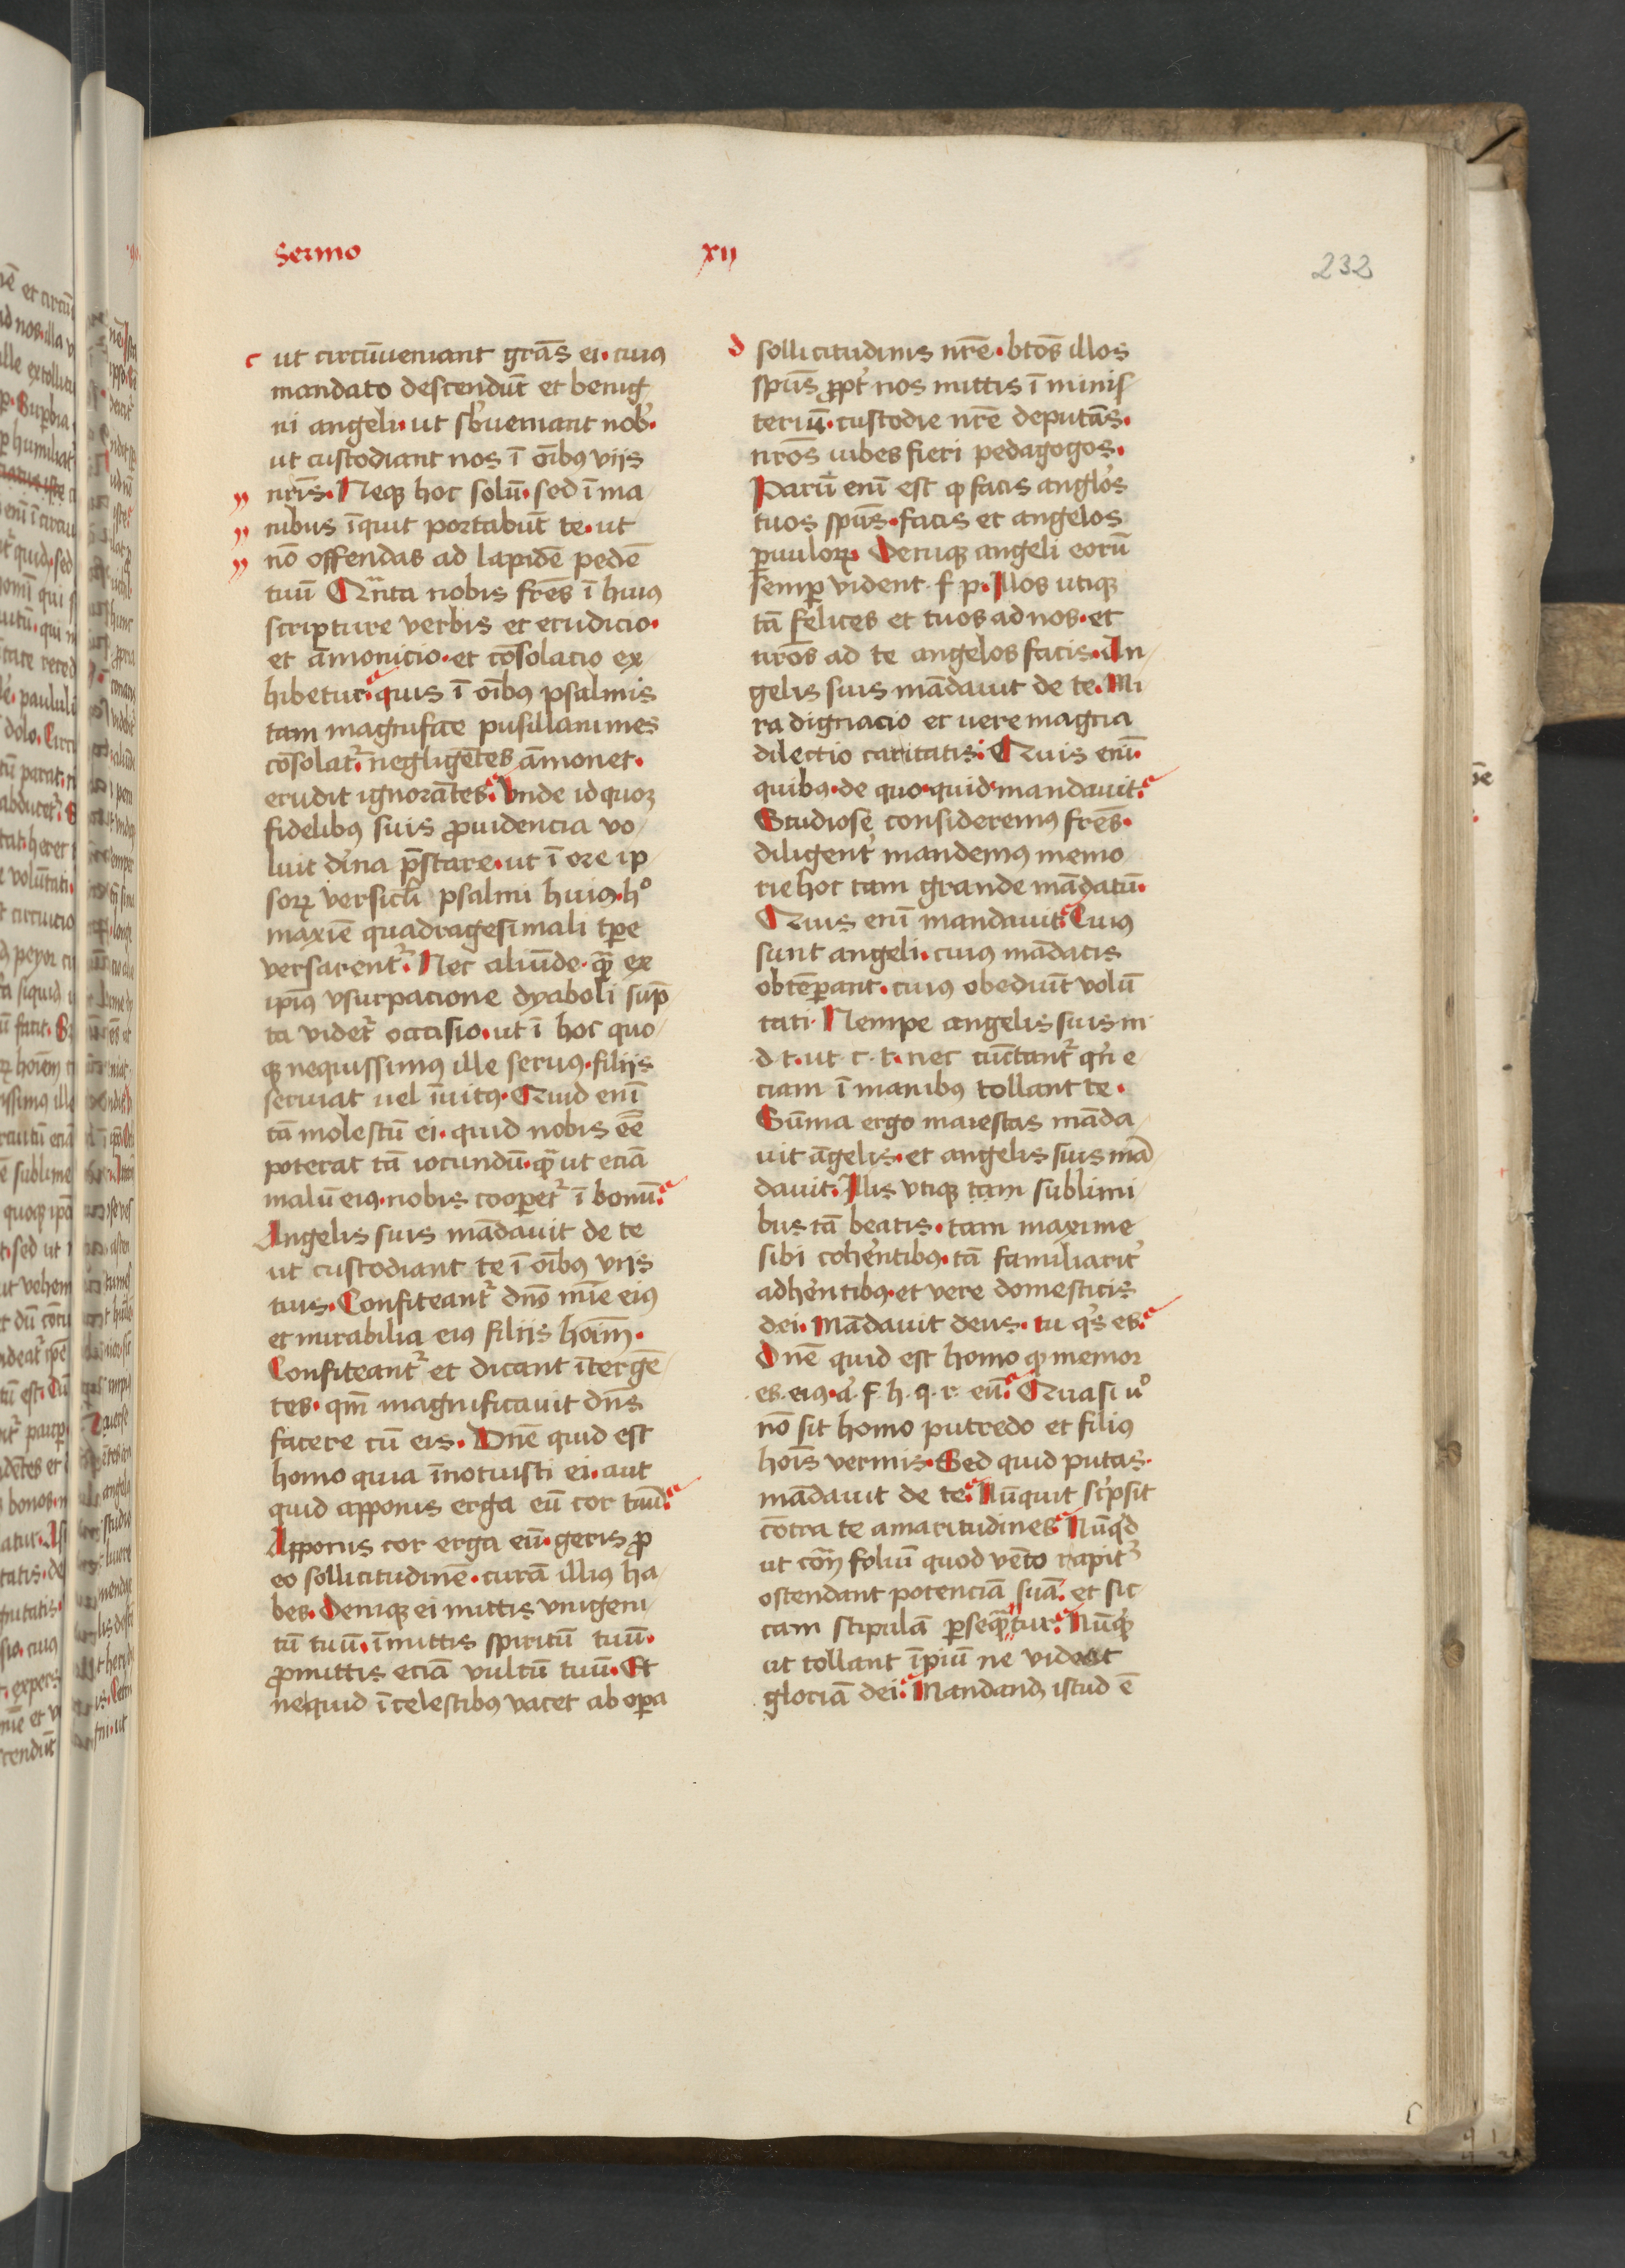 Sermo xii
232
c ut circūveniant grās ei. cuiꝰ
mandato descendūt et benig
ni angeli. ut sb̉ueniant nob̉.
ut custodiant nos ī oībꝰ viis
nrīs. Neqꝫ hoc solū. sed ī ma
nibus īquit portabūt te. ut
nō offendas ad lapidē pedē
tuū Qn̄ta nobis frēs ī huiꝰ
scripture verbis et erudicio.
et āmonicio. et cōsolacio ex
hibetur. quis ī oībꝰ psalmis
tam magnifice pusillanimes
cōsolat᷑. negligētes āmonet.
erudit ignorātes. Vnde id quoqꝫ
fidelibꝰ suis ꝓuidencia vo
luit dīna p̄stare. ut ī ore ip
soꝝ versicl̄i psalmi huiꝰ. hº
maxīe quadragesimali tꝑe
versarent᷑. Nec aliūde. qᷓ ex
ipīꝰ vsurpacione dyaboli sūp
ta videt᷑ occasio. ut ī hoc quo
qꝫ nequissimꝰ ille seruꝰ. filiis
seruiat uel īuitꝰ. Quid enī
tā molestū ei. quid nobis eē̄
poterat tā iocundū. qᷓ ut eciā
malū eiꝰ. nobis cooꝑet᷑ ī bonū.
Angelis suis mādauit de te
ut custodiant te ī oībꝰ viis
tuis. Confiteant᷑ dnō mīe eiꝰ
et mirabilia eiꝰ filiis hoīm.
Confiteant᷑ et dicant īter gē
tes. qm̄ magnificauit dn̄s
facere cū eis. Dn̄e quid est
homo quia īnotuisti ei. aut
quid apponis erga eū cor tuū.
Apponis cor erga eū. geris ꝓ
eo sollicitudinē. curā illiꝰ ha
bes. Deniqꝫ ei mittis vnigeni
tū tuū. īmittis spiritū tuū.
ꝓmittis eciā vultū tuū. Et
ne quid ī celestibꝰ vacet ab oꝑa
d sollicitudinis nr̄e. btōs illos
spūs ꝓpt̉ nos mittis ī minis
teriū. custodie nr̄e deputās.
nrōs iubes fieri pedagogos.
Parū enī est ꝙ facis anglōs
tuos spūs. facis et angelos
ꝑuuloꝝ. Deniqꝫ angeli eorū
semꝑ vident. f p. Illos utiqꝫ
tā felices et tuos ad nos. et
nrōs ad te angelos facis. An
gelis suis mādauit de te. Mi
ra dignacio et uere magna
dilectio caritatis. Quis enī.
quibꝰ. de quo. quid mandauit.
Studiose consideremꝰ frēs.
diligent̉ mandemꝰ memo
rie hoc tam grande mādatū.
Quis enī mandauit. Cuiꝰ
sunt angeli. cuiꝰ mādatis
obtēꝑant. cuiꝰ obediūt volū
tati. Nempe angelis suis m
d t. ut. c. t. nec cūctant᷑ qn̄ e
ciam ī manibꝰ tollant te.
Sūma ergo maiestas māda
uit āgelis. et angelis suis mā
dauit. Illis vtiqꝫ tam sublimi
bus tā beatis. tam maxime
sibi cohēntibꝰ. tā familiarit̉
adhēntibꝰ. et vere domesticis
dei. Mādauit deus. tu qⁱs es.
Dn̄e quid est homo ꝙ memor
es. eiꝰ. a. f. h. q. r. eū. Quasi uº
nō sit homo putredo et filiꝰ
hoīs vermis. Sed quid putas.
mādauit de te. Nūquit scⁱpsit
cōtra te amaritudines. Nūqⁱd
ut cōt̄ foliū quod vēto rapit᷑
ostendant potenciā suā. et sic
cam stipulā ꝑseqᷓtur. Nūqⁱd
ut tollant īpiū ne videat
gloriā dei. Mandandꝫ istud ē